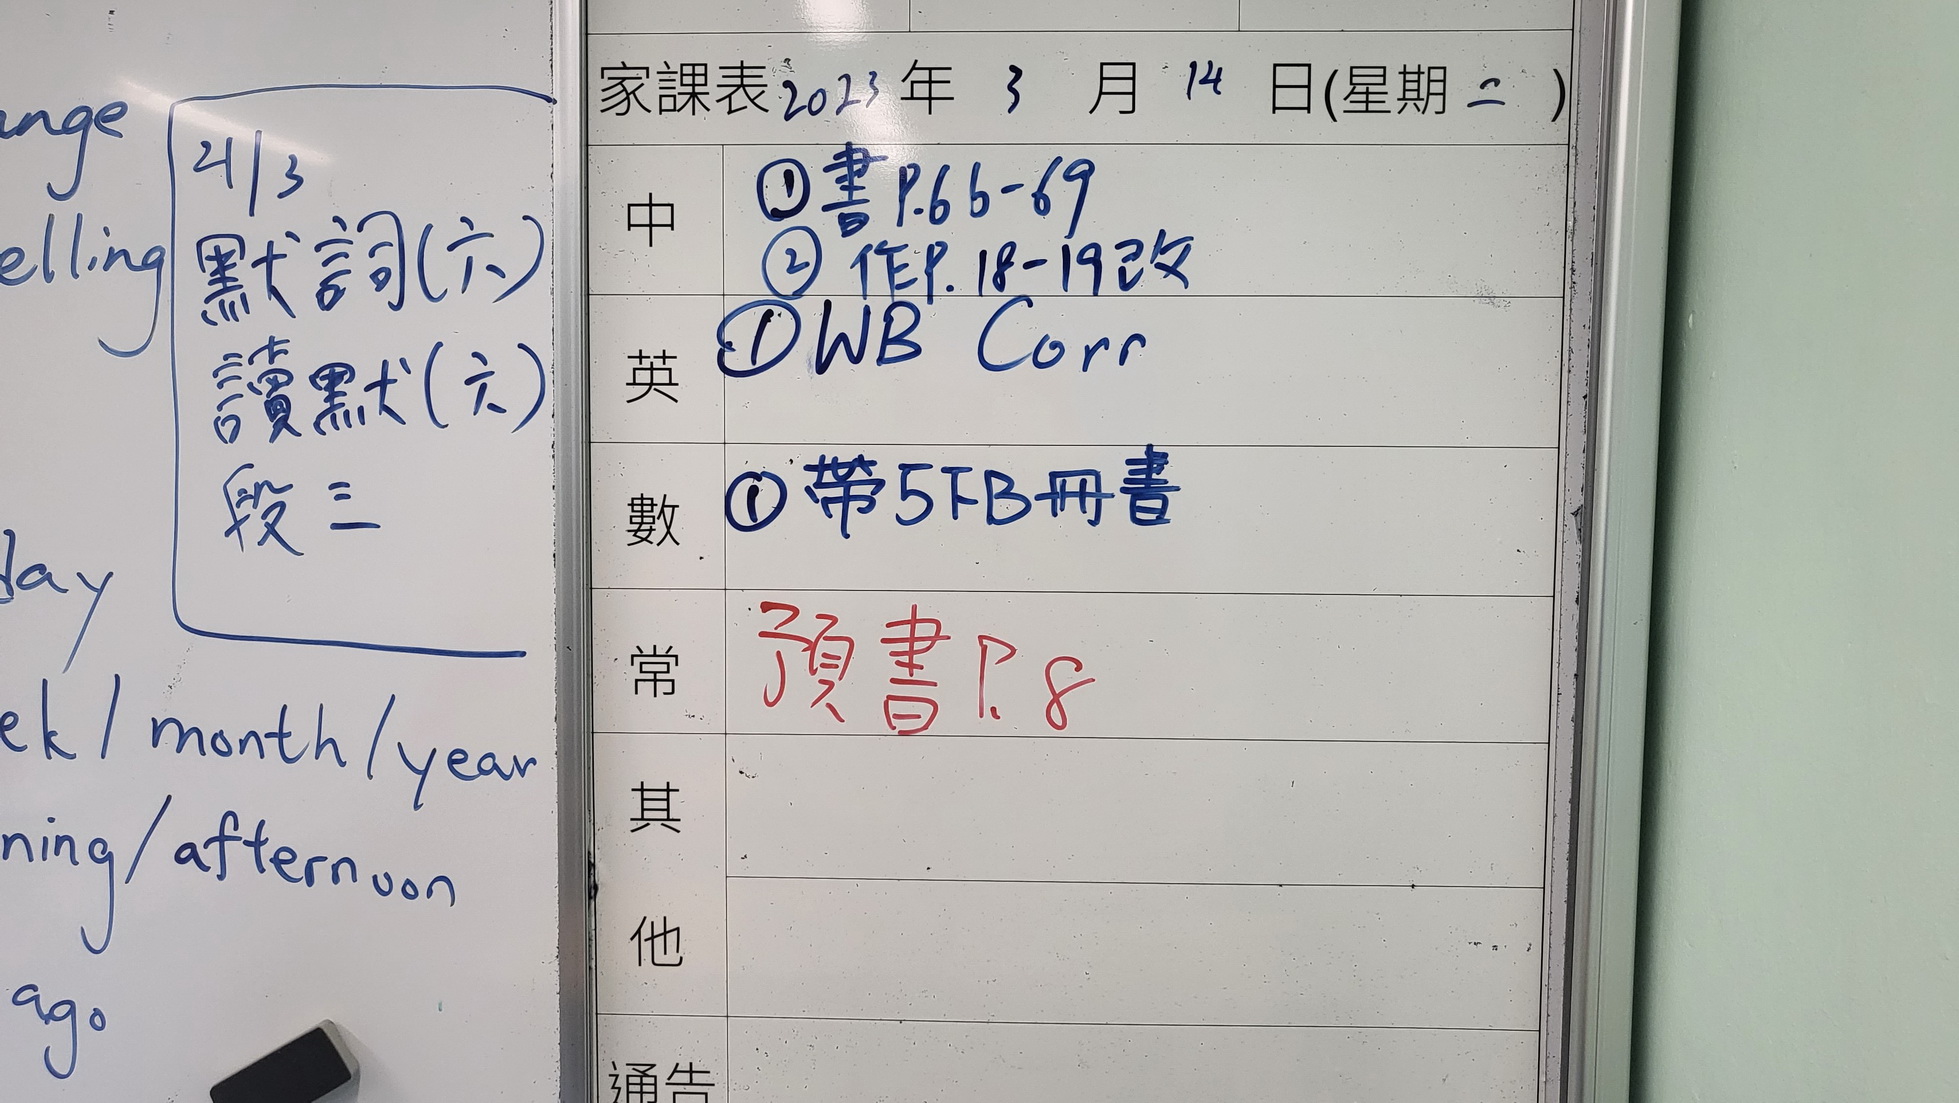 ange
elling
day
ek / month / year
ning / afternoon
ago
21/3
默詞(六)
讀默(六)
段三
家課表 2023 年 3 月 14 日(星期 二 )
中
① 書 P.66-69
② 作 P. 18-19改
英
① WB Corr
數
① 帶5下B冊書
常
預書 P. 8
其
他
通告